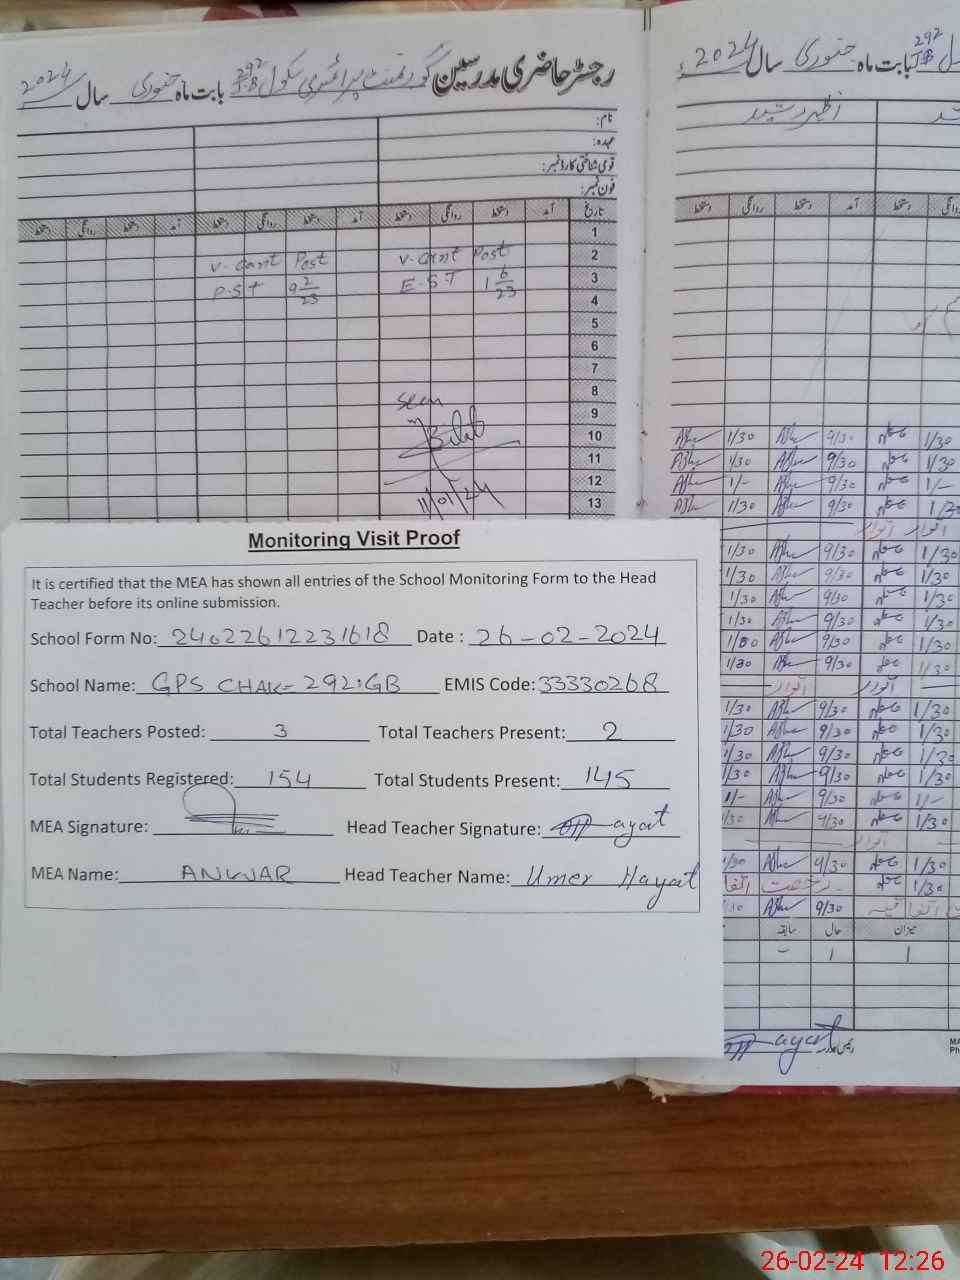 رجسٹر حاضری مدرسین گورنمنٹ پرائمری سکول 292 بابت ماہ جنوری سال 2024
نام:
عہدہ:
قومی شناختی کارڈ نمبر:
فون نمبر:
تاریخ آمد دستخط روانگی دستخط آمد دستخط روانگی دستخط آمد دستخط روانگی دستخط
1
2
V-cant Post V-cant Post
3
P.S.T 9 2/23 E.S.T 1 6/23
4
5
6
7
8
seen
9
10
Bilal
11
12
11/01/24
13
292 بابت ماہ جنوری سال 2024ء
اظہر رشید
روانگی دستخط آمد دستخط روانگی دستخط
1/30 9/30 1/30
1/30 9/30 1/30
1/- 9/30 1/-
1/30 9/30 1/30
اتوار اتوار
1/30 9/30 1/30
1/30 9/30 1/30
1/30 9/30 1/30
1/30 9/30 1/30
1/30 9/30 1/30
1/30 9/30 1/30
اتوار اتوار
1/30 9/30 1/30
1/30 9/30 1/30
1/30 9/30 1/30
1/30 9/30 1/30
1/- 9/30 1/-
1/30 9/30 1/30
اتوار
1/30 9/30 1/30
رخصت 1/30
9/30
میزان حال سابقہ
1 1 -
Monitoring Visit Proof
It is certified that the MEA has shown all entries of the School Monitoring Form to the Head
Teacher before its online submission.
School Form No: 24022612231618 Date : 26-02-2024
School Name: GPS CHAK 292:GB EMIS Code: 33330268
Total Teachers Posted: 3 Total Teachers Present: 2
Total Students Registered: 154 Total Students Present: 145
MEA Signature: Head Teacher Signature: ayat
MEA Name: ANWAR Head Teacher Name: Umer Hayat
26-02-24 12:26